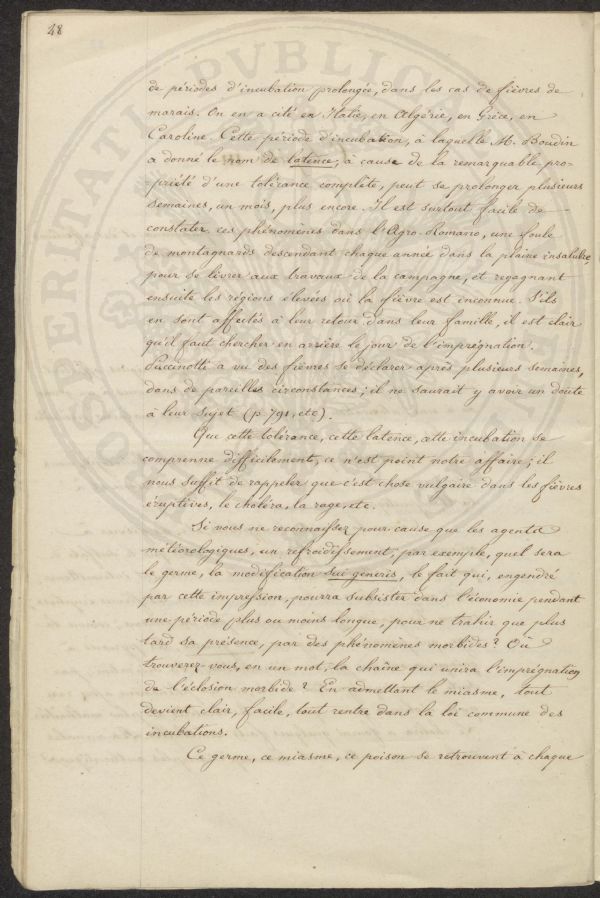 48
de périodes d'incubation prolongée, dans les cas de fièvres de
marais. On en a cité en Italie, en Algérie, en Grèce, en
Caroline. Cette période d'incubation, à laquelle M. Boudin
a donné le nom de latence, à cause de la remarquable pro-
-priété d'une tolérance complète, peut se prolonger plusieurs
semaines, un mois, plus encore. Il est surtout facile de
constater ces phénomènes dans l'Agro-Romano, une foule
de montagnards descendant chaque année dans la plaine insalubre,
pour se livrer aux travaux de la campagne, et regagnant
ensuite les régions élevées où la fièvre est inconnue. S'ils
en sont affectés à leur retour dans leur famille, il est clair
qu'il faut chercher en arrière le jour de l'imprégnation.
Puccinotti a vu des fièvres se déclarer après plusieurs semaines,
dans de pareilles circonstances; il ne saurait y avoir un doute
à leur sujet (p. 791, etc).
Que cette tolérance, cette latence, cette incubation se
comprenne difficilement, ce n'est point notre affaire; il
nous suffit de rappeler que c'est chose vulgaire dans les fièvres
éruptives, le choléra, la rage, etc.
Si vous ne reconnaissez pour cause que les agents
météorologiques, un refroidissement, par exemple, quel sera
le germe, la modification sui generis, le fait qui, engendré
par cette impression, pourra subsister dans l'économie pendant
une période plus ou moins longue, pour ne trahir que plus
tard sa présence, par des phénomènes morbides? Où
trouverez-vous, en un mot, la chaîne qui unira l'imprégnation
de l'éclosion morbide? En admettant le miasme, tout
devient clair, facile, tout rentre dans la loi commune des
incubations.
Ce germe, ce miasme, ce poison se retrouvent à chaque